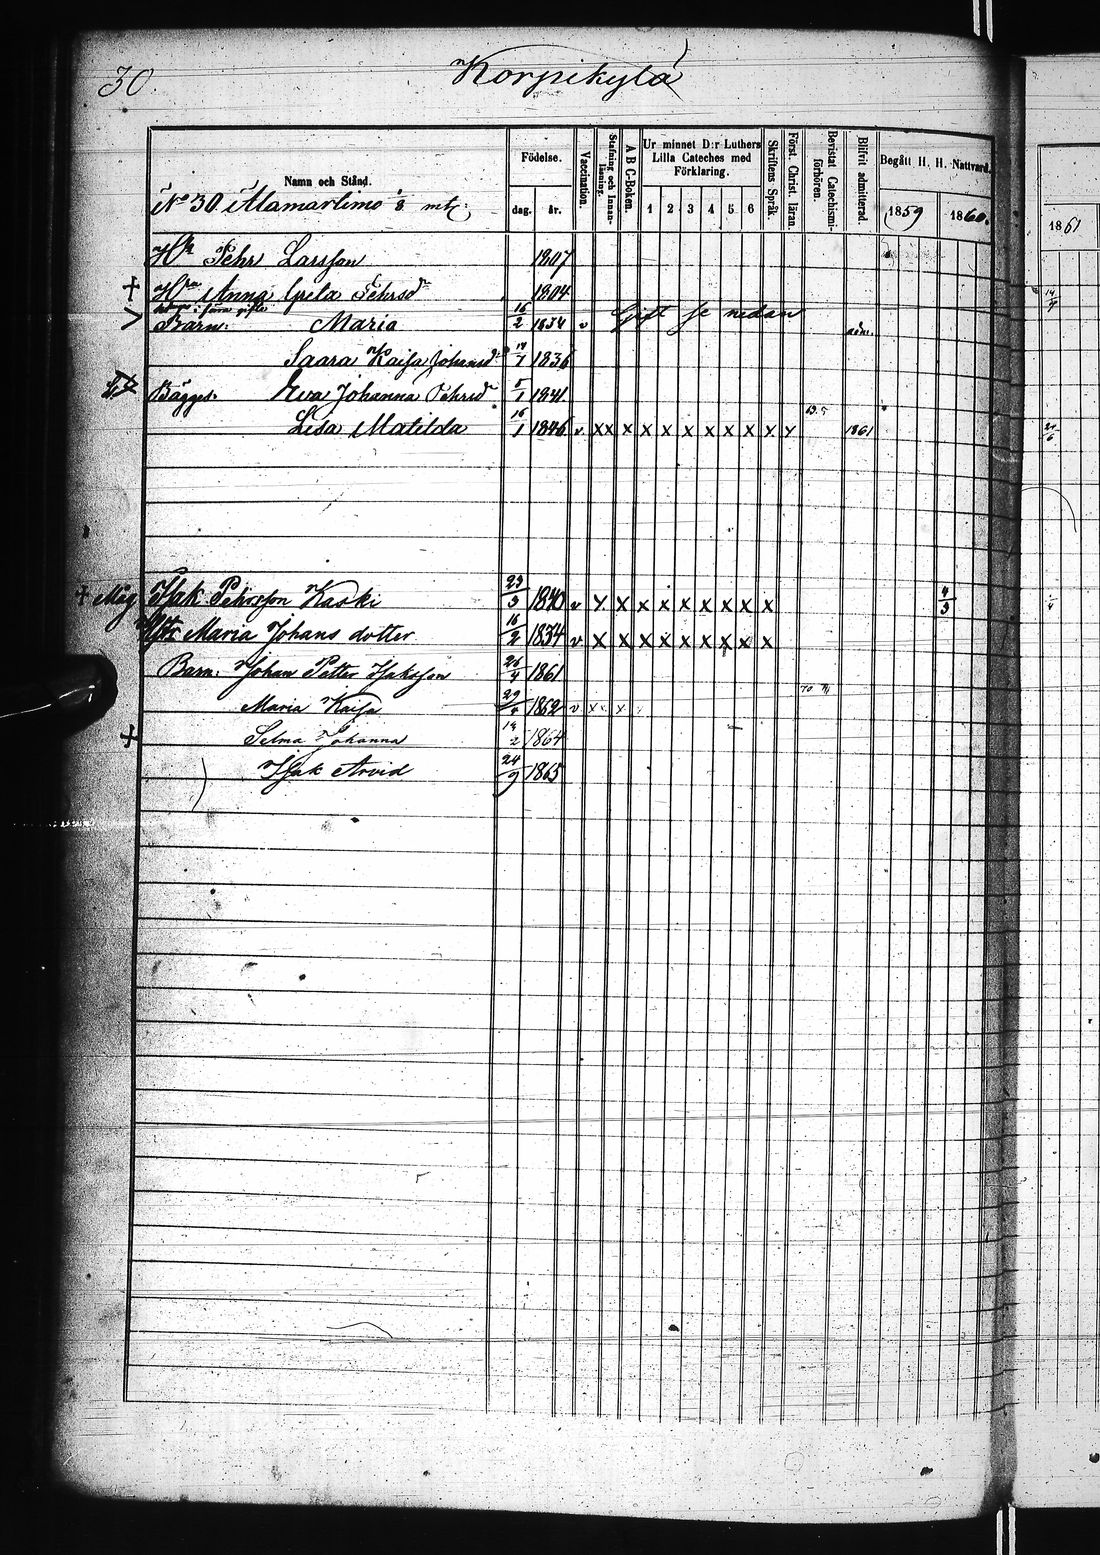 30. Korpikylä
Namn och Stånd.
Födelse.
dag. år.
Vaccination.
Stafning och Innanläsning.
A B C-Boken.
Ur minnet D:r Luthers Lilla Cateches med Förklaring.
1 2 3 4 5 6
Skriftens Språk.
Först. Christ. läran.
Bevistat Catechismiförhören.
Blifvit admitterad.
Begått H. H. Nattvard.
1859 1860. 1861
No 30 Alamartimo 1/8 mtl:
Hn Pehr Larsson 1807
+ Hn Anna Greta Pehrsdr 1804
Barn: Maria 16/2 1834 v Gift se nedan adm.
Saara Kaisa Johansdr 1836
Bägges: Eva Johanna Pehrsd 5/1 1841
Lisa Matilda 16/1 1846 v x x x x x x x x x x 1861
+ Måg Isak Pehrsson Kaski 23/3 1840 v x x x x x x x x x 4/3
Maria Johans dotter 16/2 1834 v x x x x x x x x x
Barn: Johan Petter Isaksson 1861
Maria Kaisa 1862 v x x
+ Selma Johanna 14/2 1864
Isak Arvid 24/9 1865